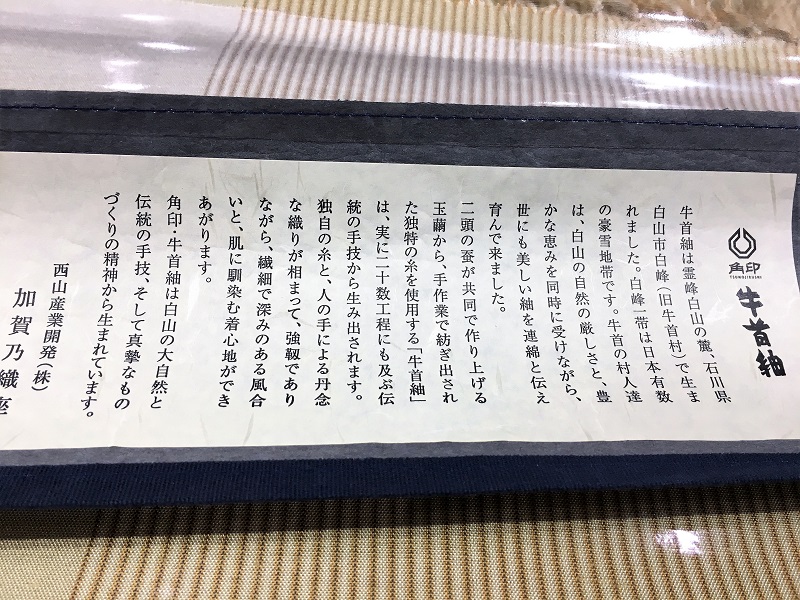 角印
TSUNOJIRUSHI
牛首紬
牛首紬は霊峰白山の麓、石川県
白山市白峰（旧牛首村）で生ま
れました。白峰一帯は日本有数
の豪雪地帯です。牛首の村人達
は、白山の自然の厳しさと、豊
かな恵みを同時に受けながら、
世にも美しい紬を連綿と伝え
育んで来ました。
二頭の蚕が共同で作り上げる
玉繭から、手作業で紡ぎ出され
た独特の糸を使用する「牛首紬」
は、実に二十数工程にも及ぶ伝
統の手技から生み出されます。
独自の糸と、人の手による丹念
な織りが相まって、強靭であり
ながら、繊細で深みのある風合
いと、肌に馴染む着心地ができ
あがります。
角印・牛首紬は白山の大自然と
伝統の手技、そして真摯なもの
づくりの精神から生まれています。
西山産業開発（株）
加賀乃織座